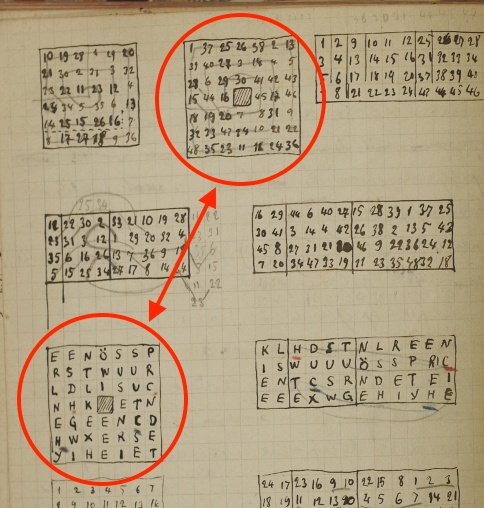 10 19 28 1 29 20
21 30 2 31 3 32
33 22 11 23 12 4
24 34 5 35 6 13
14 25 15 26 16 7
8 17 27 18 9 36
1 37 25 26 38 2 13
39 40 27 3 14 4 5
28 6 29 30 41 42 43
15 44 16 45 17 46
18 19 20 7 8 31 9
32 33 47 34 10 21 22
48 35 23 11 12 24 36
1 2 9 10 11 12 25 26 27 28
3 4 13 14 15 16 31 32 33 34
5 6 17 18 19 20 37 38 39 40
7 8 21 22 23 24 43 44 45 46
18 22 30 2 33 21 10 19 28
31 3 12 1 29 20 32 4
35 6 16 26 13 7 36 9
5 15 25 34 27 17 8 14 24
16 29 44 6 40 27 15 28 39 1 37 25
30 41 3 14 4 42 26 38 2 13 5 43
45 8 31 21 46 9 22 36 24 12
7 20 34 47 33 19 11 23 35 48 32 18
E E N Ö S S P
R S T W U U R
L D L I S U C
N H K E T N
E G E E N C D
H W X E R S E
Y I H E I E T
K L H D S T N L R E E N
I S W U U U Ö S S P R C
E N T C S R N D E T E I
E E E X W G E H I Y H E
1 2 3 4 5 6 7
24 17 23 16 9 10 22 15 8 1 2 3
18 19 11 12 13 20 4 5 6 7 14 21